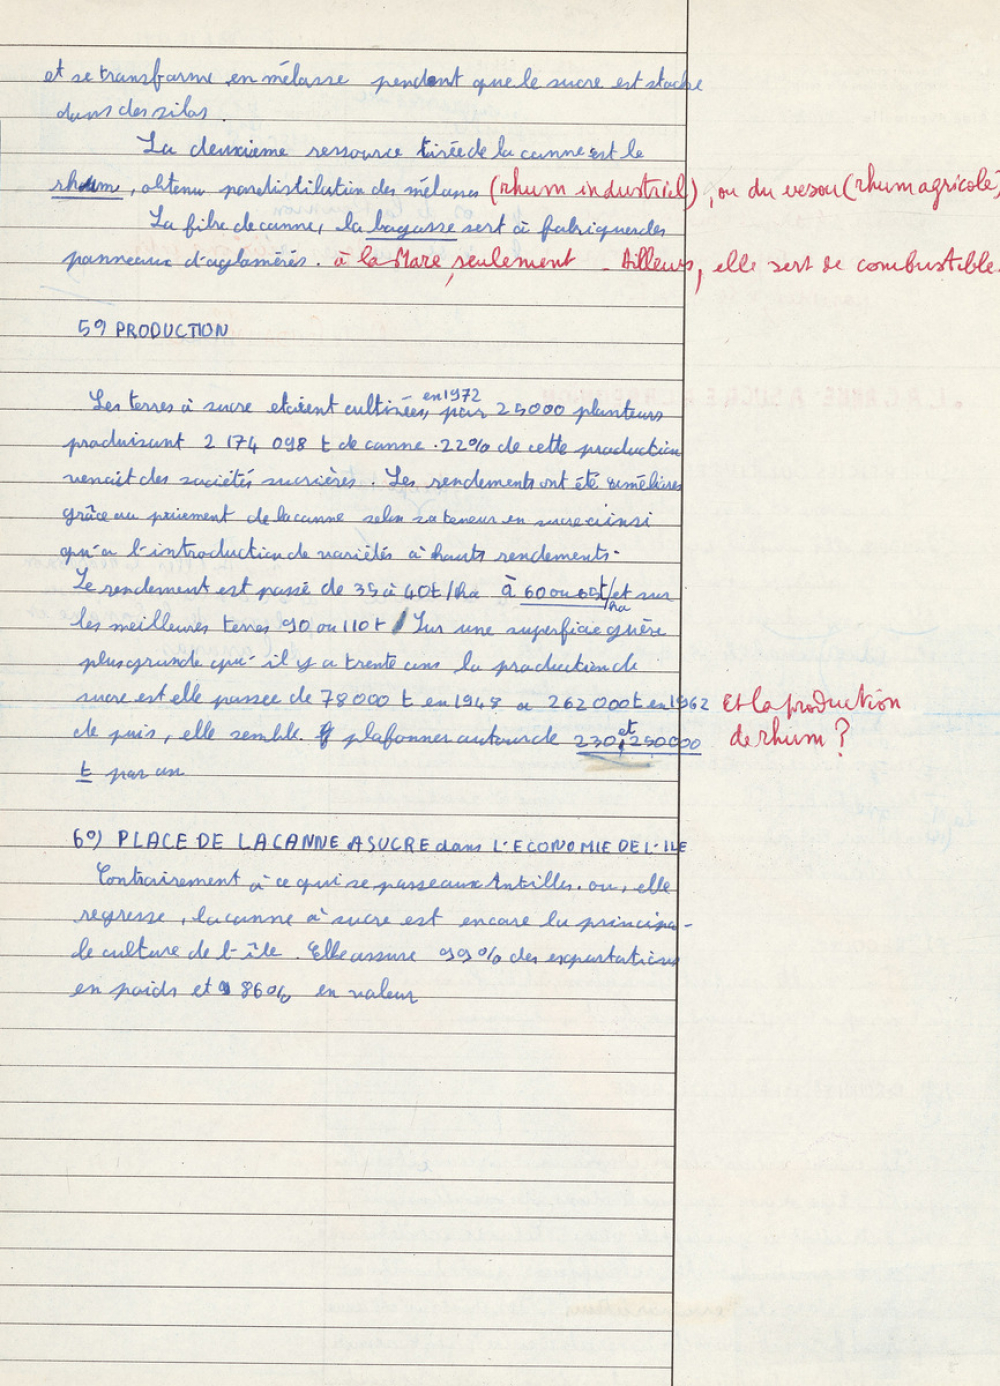 et se transforme en mélasse pendant que le sucre est stocke
dans des silos.
La deuxième ressource tirée de la canne est le
rhume, obtenu par distilution des mélasses (rhum industriel), ou du vesou (rhum agricole)
La fibre de canne, la bagasse sert à fabriquer des
panneaux d'aglomérés. à la Mare, seulement - Ailleurs, elle sert de combustible.
5°) PRODUCTION
Les terres à sucre etaient cultivées, en 1972 par 25000 planteurs
produisant 2 174 098 t de canne. 22% de cette production
venait des sociétés sucrières. Les rendements ont été améliores
grâce au paiement de la canne selon sa teneur en sucre ainsi
qu'a l'introduction de variétés à hauts rendements.
Le rendement est passé de 35 à 40t/ha à 60 ou 65t/ha et sur
les meilleures terres 90 ou 110 t / Sur une superficie guère
plus grande qu'il y a trente ans la production de
sucre est elle passee de 78000 t en 1948 a 262 000t en 1962 Et la production
de puis, elle semble plafonner autour de 230 et 250000 de rhum ?
t par an
6°) PLACE DE LA CANNE A SUCRE dans L'ECONOMIE DE L'ILE
Contrairement à ce qui se passe aux Antilles. ou, elle
regresse, la canne à sucre est encore la principa-
le culture de l'île. Elle assure 99% des exportations
en poids et 86% en valeur